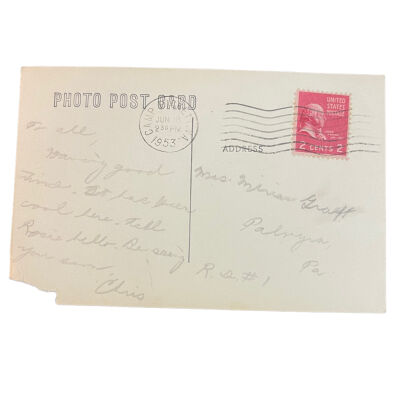 PHOTO POST CARD
CAMP
JUN
PM
1953
UNITED
STATES
POSTAGE
2 CENTS 2
ADDRESS
To all,
Having good
time. It has been
cool here. Tell
Rosie hello. Be seeing
you soon.
Chris
Mrs. Miriam Graff
Palmyra,
Pa.
R.D.#1